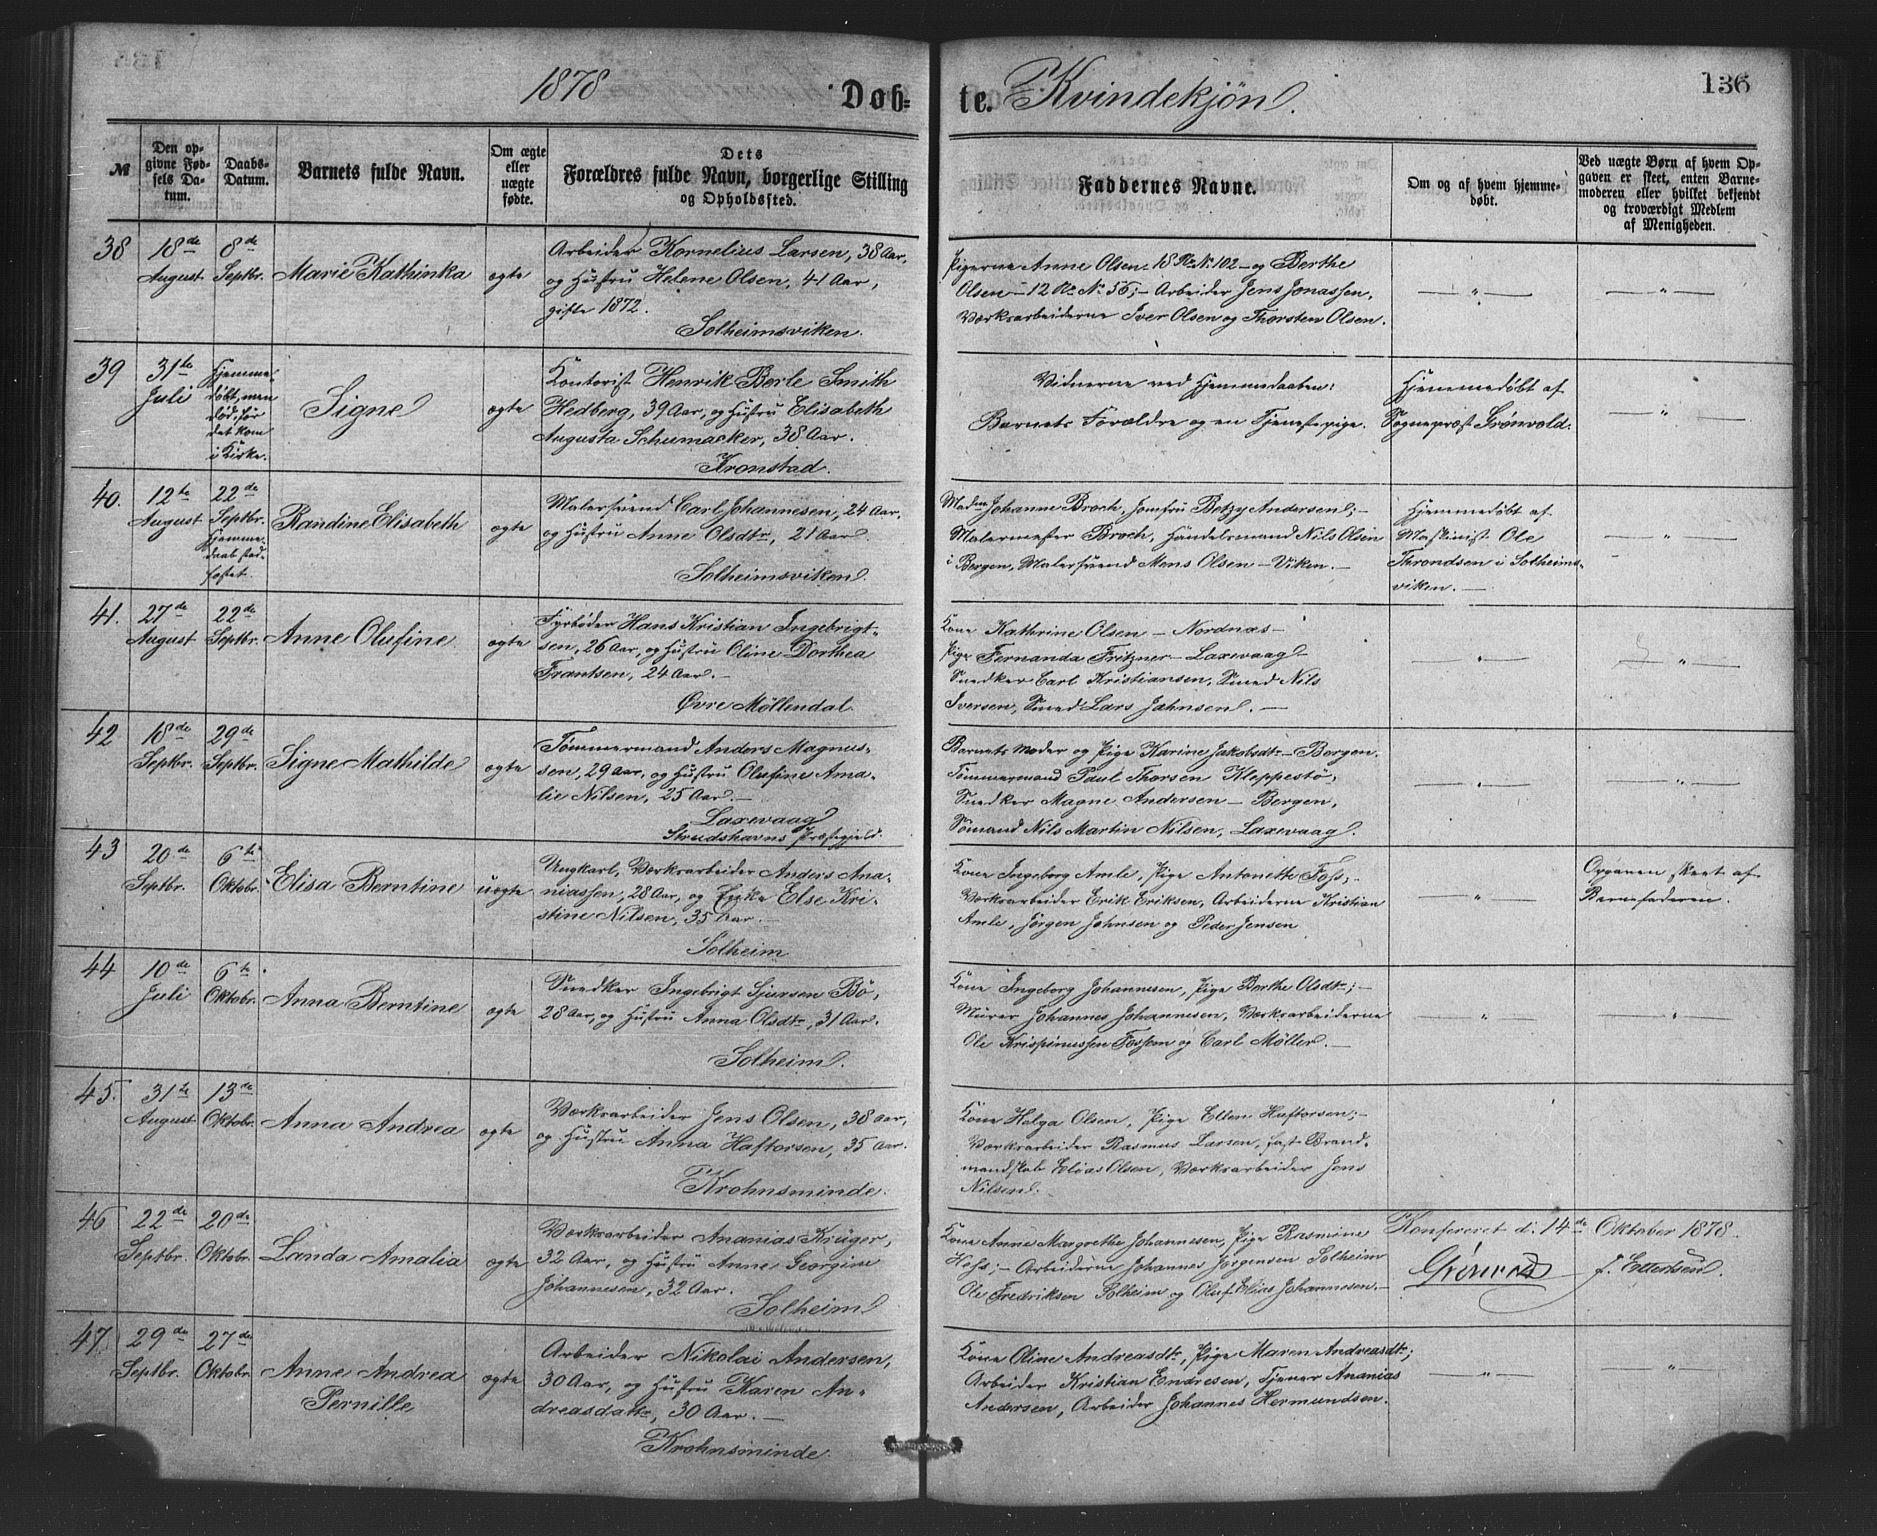 1878
Døb-
te.
Kvindekjøn.
136
№
Den op-
givne Fød-
sels Da-
tum.
Daabs-
Datum.
Barnets fulde Navn.
Om ægte
eller
uægte
fødte.
Dets
Forældres fulde Navn, borgerlige Stilling
og Opholdssted.
Faddernes Navne.
Om og af hvem hjemme-
døbt.
Ved uægte Børn af hvem Op-
gaven er skeet, enten Barne-
moderen eller hvilket bekjendt
og troværdigt Medlem
af Menigheden.
38
18de
August
8de
Septbr.
Marie Kathinka
ægte
Arbeider Kornelius Larsen, 38 Aar,
og Hustru Helene Olsen, 41 Aar,
gifte 1872.
Solheimsviken.
Pigerne Anne Olsen 18 Ro No 102 og Berthe
Olsen - 12 Ro No 56; - Arbeider Jens Jonassen,
Værksarbeiderne Iver Olsen og Thorsten Olsen.
— " —
— " —
39
31te
Juli
Hjemme-
døbt, men
død, før
det kom
i Kirke.
Signe
ægte
Kontorist Henrik Berle Smith
Hedberg, 39 Aar, og Hustru Elisabeth
Augusta Schumacker, 38 Aar.
Kronstad.
Vidnerne ved Hjemmedaaben:
Barnets Forældre og en Tjenestepige.
Hjemmedøbt af
Sognepræst Grønvold.
— " —
40.
12te
August
22de
Septbr.
Hjemme-
daab stad-
fæstet.
Randine Elisabeth
ægte
Malersvend Carl Johannesen, 24 Aar,
og Hustru Anne Olsdtr, 21 Aar.
Solheimsviken.
Madm Johanne Broch, Jomfru Betzy Andersen; -
Malermester Broch, Handelsmand Nils Olsen
i Bergen, Malersvend Mons Olsen - Viken. -
Hjemmedøbt af
Maskinist Ole
Throndsen i Solheims-
viken. -
— " —
41.
27de
August
22de
Septbr.
Anne Olufine
ægte
Fyrbøder Hans Kristian Ingebrigt-
sen, 26 Aar, og Hustru Oline Dorthea
Frantsen, 24 Aar. -
Øvre Møllendal.
Kone Kathrine Olsen - Nordnæs -
Pige Fernanda Fritzner - Laxevaag -
Snedker Carl Kristiansen, Smed Nils
Iversen, Smed Lars Jahnsen. -
— " —
— " —
42
18de
Septbr.
29de
Septbr.
Signe Mathilde
ægte
Tømmermand Anders Magnus-
sen, 29 Aar, og Hustru Olufine Ama-
lie Nilsen, 25 Aar. -
Laxevaag
Strudshavns Præstegjeld.
Barnets Moder og Pige Karine Jakobsdtr - Bergen.
Tømmermand Paul Thorsen Kleppestø,
Snedker Magne Andersen - Bergen,
Sømand Nils Martin Nilsen, Laxevaag.
— " —
— " —
43
20de
Septbr.
6te
Oktobr.
Elisa Berntine
uægte
Ungkarl, Værksarbeider Anders Ana-
niassen, 28 Aar, og Enke Else Kri-
stine Nilsen, 35 Aar. -
Solheim
Kone Ingeborg Amle, Pige Antonette Foss; -
Værksarbeider Erik Eriksen, Arbeiderne Kristian
Amle, Jørgen Johnsen og Peder Jensen
— " —
Opgaven skeet af
Barnefaderen.
44
10de
Juli
6te
Oktobr.
Anna Berntine
ægte
Snedker Ingebrigt Sjursen Bø,
28 Aar, og Hustru Anna Olsdtr, 31 Aar.
Solheim.
Kone Ingeborg Johannesen, Pige Berthe Olsdtr; -
Murer Johannes Johannesen, Værksarbeiderne
Ole Krispinussen Fossem og Carl Møller. -
— " —
— " —
45.
31te
August
13de
Oktobr.
Anna Andrea
ægte
Værksarbeider Jens Olsen, 38 Aar,
og Hustru Anna Haftorsen, 35 Aar.
Krohnsminde.
Kone Helga Olsen, Pige Ellen Haftorsen; -
Værksarbeider Rasmus Larsen, fast Brand-
mandskab Elias Olsen, Værksarbeider Jens
Nilsen.
46
22de
Septbr.
20de
Oktobr.
Landa Amalia
ægte
Værksarbeider Ananias Krüger,
32 Aar, og Hustru Anne Georgine
Johannesen, 32 Aar.
Solheim
Kone Anne Margrethe Johannesen, Pige Rasmine
Hess; - Arbeiderne Johannes Jørgensen Solheim
Ole Fredriksen Solheim og Oluf Elias Johannesen. -
Konfereret d. 14de Oktober 1878.
Grønvold
J. Ellertsen.
47.
29de
Septbr.
27de
Oktobr.
Anne Andrea
Pernille
ægte
Arbeider Nikolai Andersen,
30 Aar, og Hustru Karen An-
dreasdattr, 30 Aar. -
Krohnsminde.
Kone Oline Andreasdtr, Pige Maren Andreasdtr;
Arbeider Kristian Endresen, Tjener Ananias
Andersen, Arbeider Johannes Hermundsen.
— " —
— " —